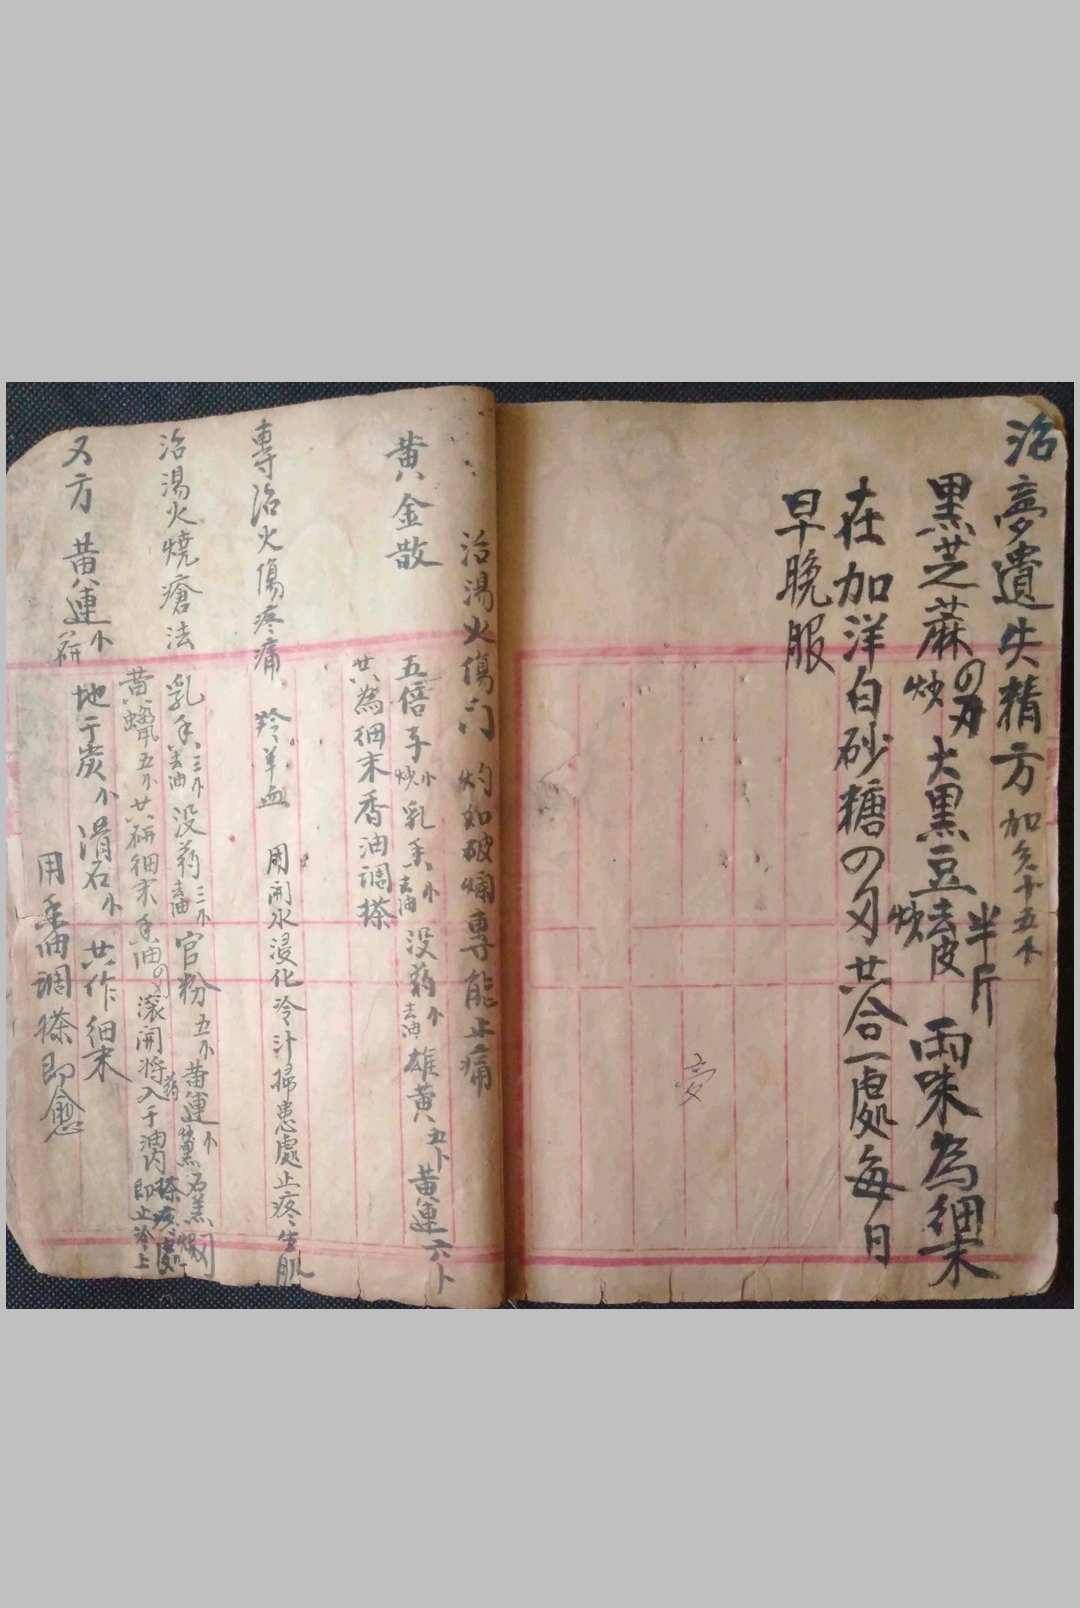 治夢遺失精方 加
十五
黑芝蔴炒 大黑豆去皮炒 半斤 両味為細末
在加洋白砂糖 共合一處每日
早晚服
夢
治湯火傷門 灼如破爛專能止痛
黄金散 五倍子炒 乳香去油 没药去油 雄黄五 黄連六
共為細末香油調搽
專治火傷疼痛 羚羊血 用開水浸化冷汁掃患處止疼生肌
治湯火燒瘡法 乳香去油三 没药去油三 官粉五 黄連 石羔煅
黄蠟五 共研細末香油 滚開将药入于油内搽患處即止冷上
又方 黄連研 地于炭 滑石 共作细末
用香油調搽即愈